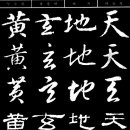 天天天天
地地地地
玄玄玄玄
黃黃黃黃